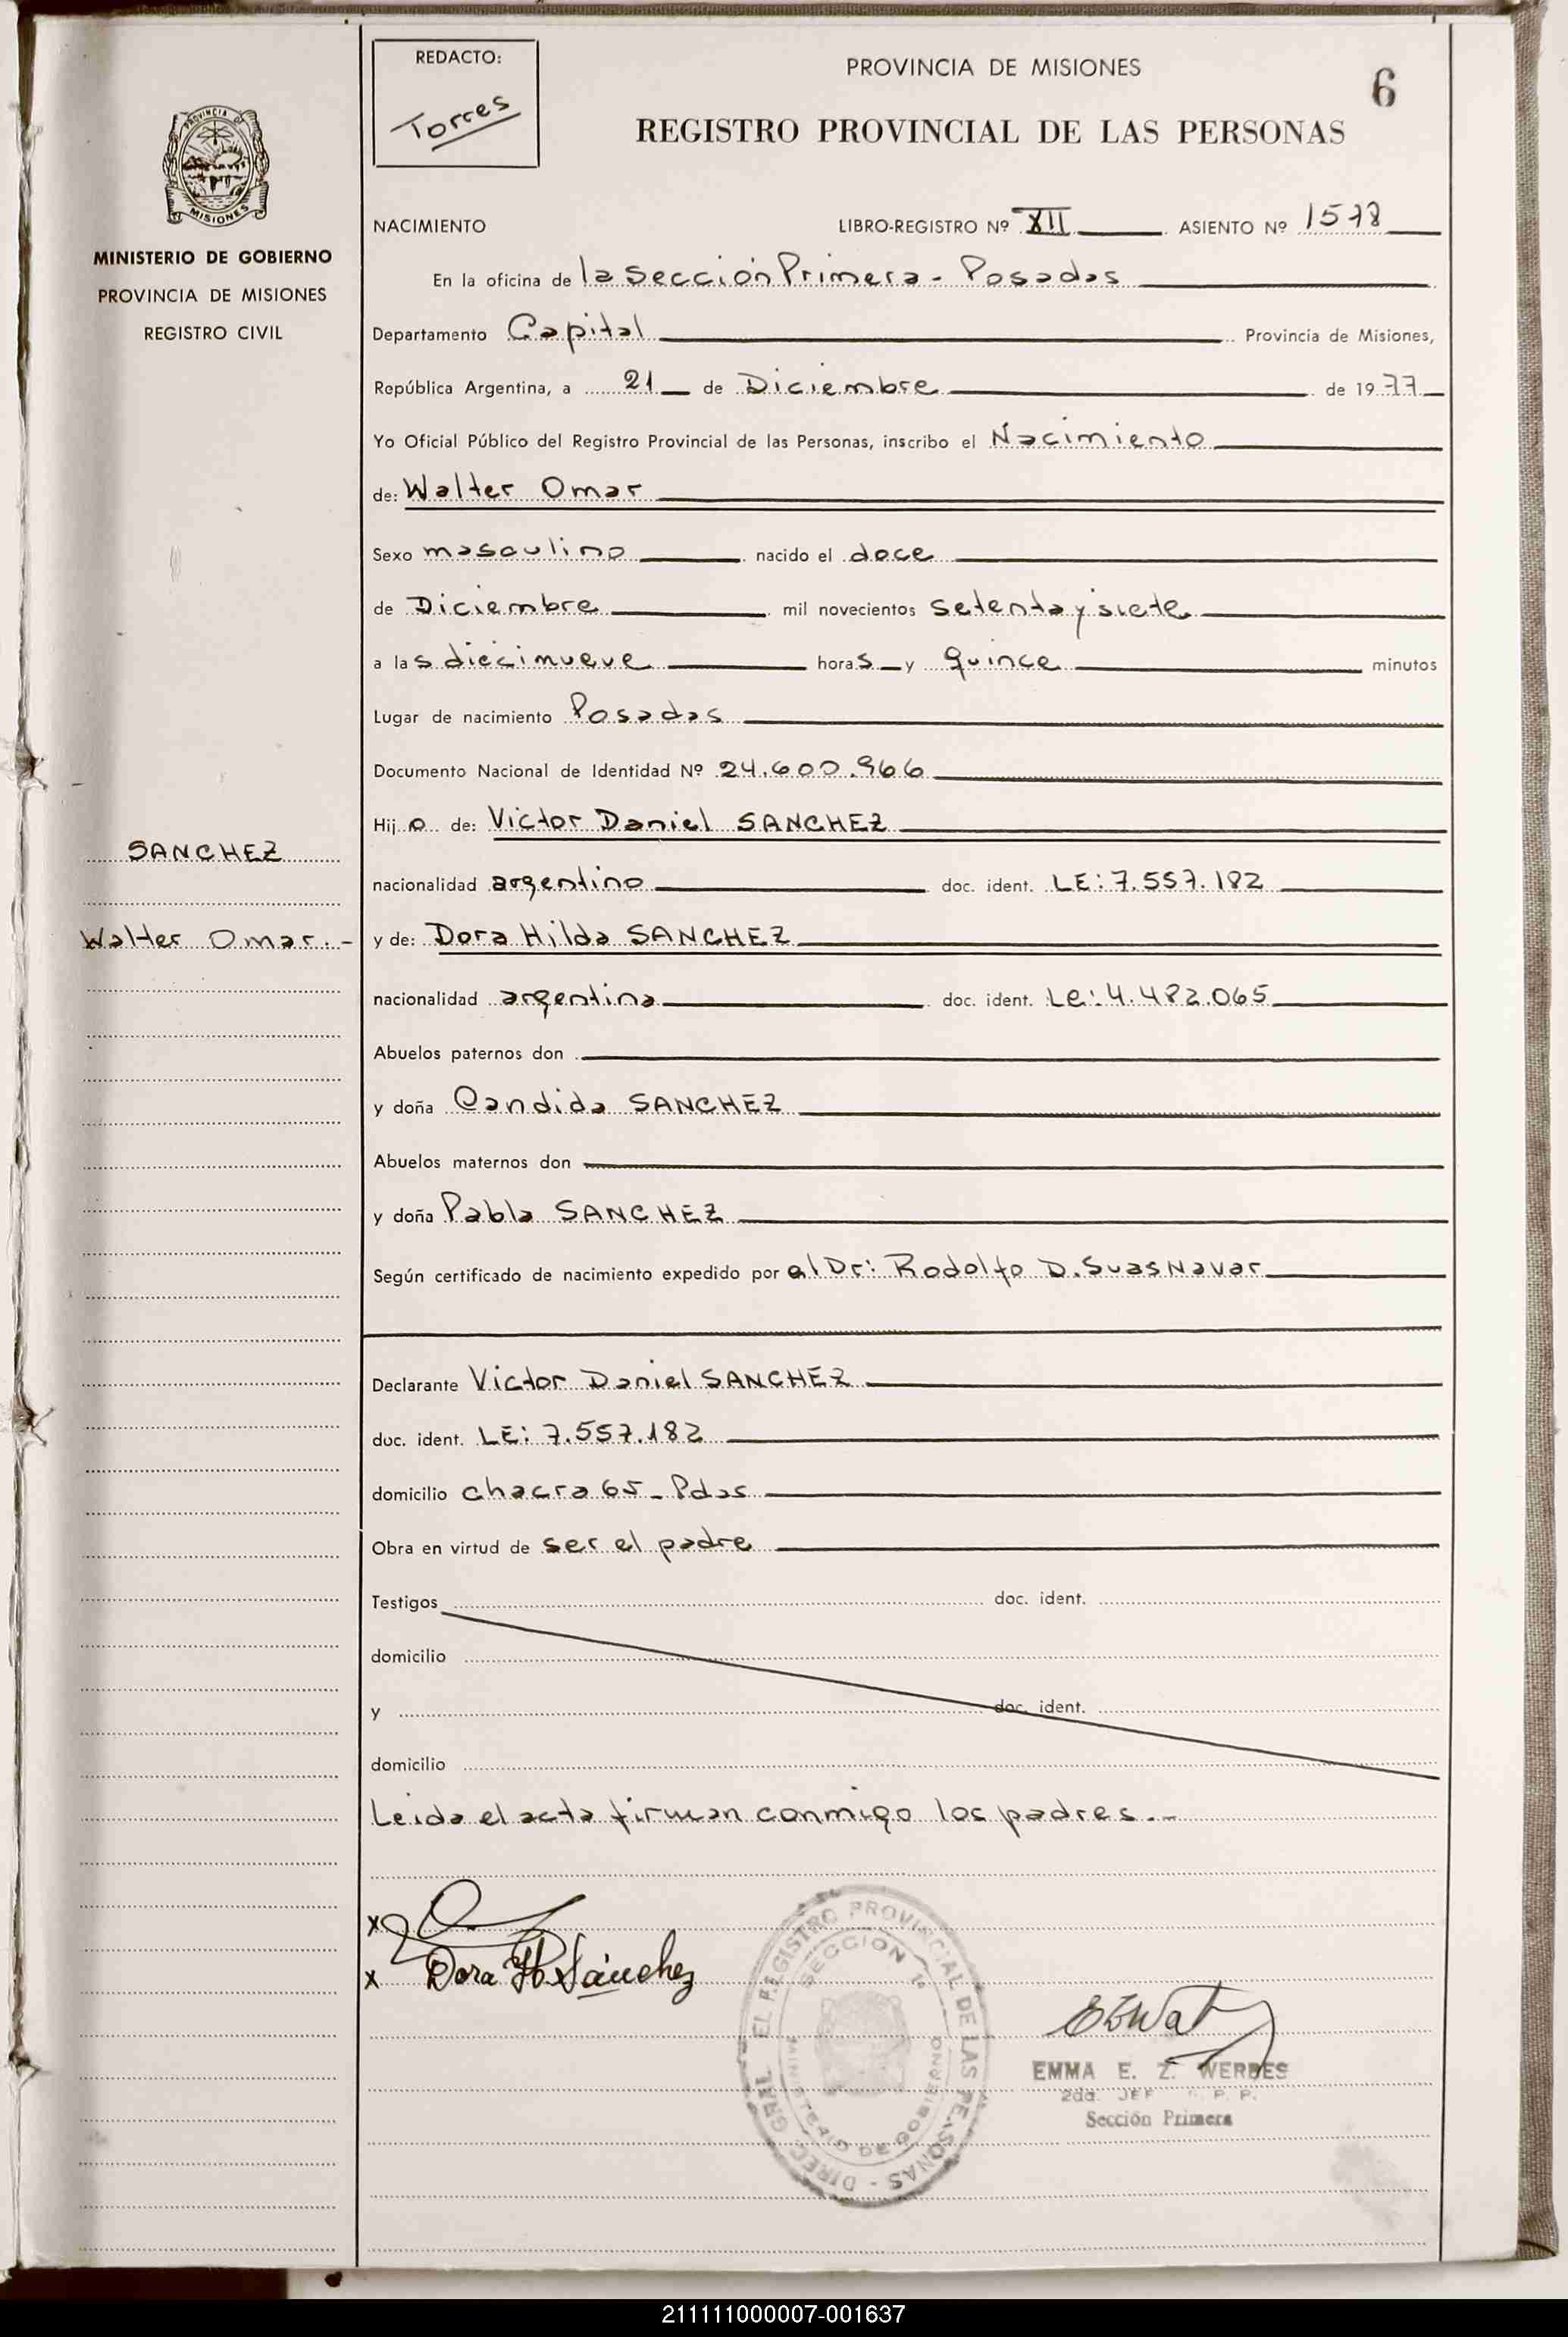 REDACTO:
Torres
PROVINCIA DE MISIONES
6
REGISTRO PROVINCIAL DE LAS PERSONAS
PROVINCIA DE
MISIONES
MINISTERIO DE GOBIERNO
PROVINCIA DE MISIONES
REGISTRO CIVIL
NACIMIENTO LIBRO-REGISTRO Nº XII ASIENTO Nº 1578
En la oficina de la Sección Primera - Posadas
Departamento Capital Provincia de Misiones,
República Argentina, a 21 de Diciembre de 1977
Yo Oficial Público del Registro Provincial de las Personas, inscribo el Nacimiento
de: Walter Omar
Sexo masculino nacido el doce
de Diciembre mil novecientos setenta y siete
a las diecinueve horas y quince minutos
Lugar de nacimiento Posadas
Documento Nacional de Identidad Nº 24.600.966
Hijo de: Victor Daniel SANCHEZ
SANCHEZ
nacionalidad argentino doc. ident. LE: 7.557.182
Walter Omar.-
y de: Dora Hilda SANCHEZ
nacionalidad argentina doc. ident. Le: 4.482.065
Abuelos paternos don
y doña Candida SANCHEZ
Abuelos maternos don
y doña Pabla SANCHEZ
Según certificado de nacimiento expedido por el Dr: Rodolfo D. Suasnavar
Declarante Victor Daniel SANCHEZ
doc. ident. LE: 7.557.182
domicilio chacra 65 - Pdas
Obra en virtud de ser el padre
Testigos doc. ident.
domicilio
y doc. ident.
domicilio
Leida el acta firman conmigo los padres.-
x
x Dora H. Sánchez
DIREC. GRAL. EL REGISTRO PROVINCIAL DE LAS PERSONAS
SECCION 1a
MINISTERIO DE GOBIERNO
EMMA E. Z. WERBES
2da. JEF P. P.
Sección Primera
211111000007-001637